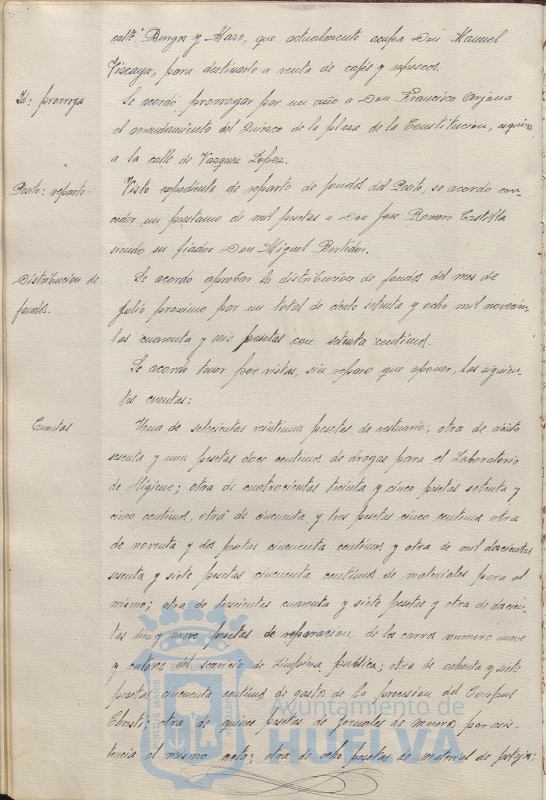 calle Burgos y Maso, que actualmente ocupa Don Manuel
Viscaya, para destinarlo a venta de cafés y refrescos.
Id: prorroga
Se acordó prorrogar por un año a Don Francisco Orjana
el arrendamiento del Quiosco de la plaza de la Constitución, esquina
a la calle de Vazquez Lopez.
Posito: reparto
Visto expediente de reparto de fondos del Posito, se acordo con-
ceder un prestamo de mil pesetas a Don Jose Romero Castilla
siendo su fiador Don Miguel Bertidor.
Distribucion de
fondos.
Se acordo aprobar la distribucion de fondos del mes de
Julio proximo por un total de ciento setenta y ocho mil novecien-
tas cuarenta y seis pesetas con setenta centimos.
Se acordo tener por vistas, sin reparo que oponer, las siguien-
tes cuentas:
Cuentas
Una de setecientas veintiuna pesetas de vestuario; otra de ciento
sesenta y una pesetas doce centimos de drogas para el Laboratorio
de Higiene; otra de cuatrocientas treinta y cinco pesetas setenta y
cinco centimos, otra de cincuenta y tres pesetas cinco centimos otra
de noventa y dos pesetas cincuenta centimos y otra de mil doscientas
sesenta y siete pesetas cincuenta centimos de materiales para el
mismo; otra de trescientas cuarenta y siete pesetas y otra de doscien-
tas diez y nueve pesetas de reparacion de los carros numero nueve
y catorce del servicio de Limpieza publica; otra de ochenta y siete
pesetas cincuenta centimos de gastos de la procesion del Corpus
Christi; otra de quince pesetas de jornales de musicos por asis-
tencia al mismo acto; otra de ocho pesetas de material de festejos;
Ayuntamiento de
HUELVA